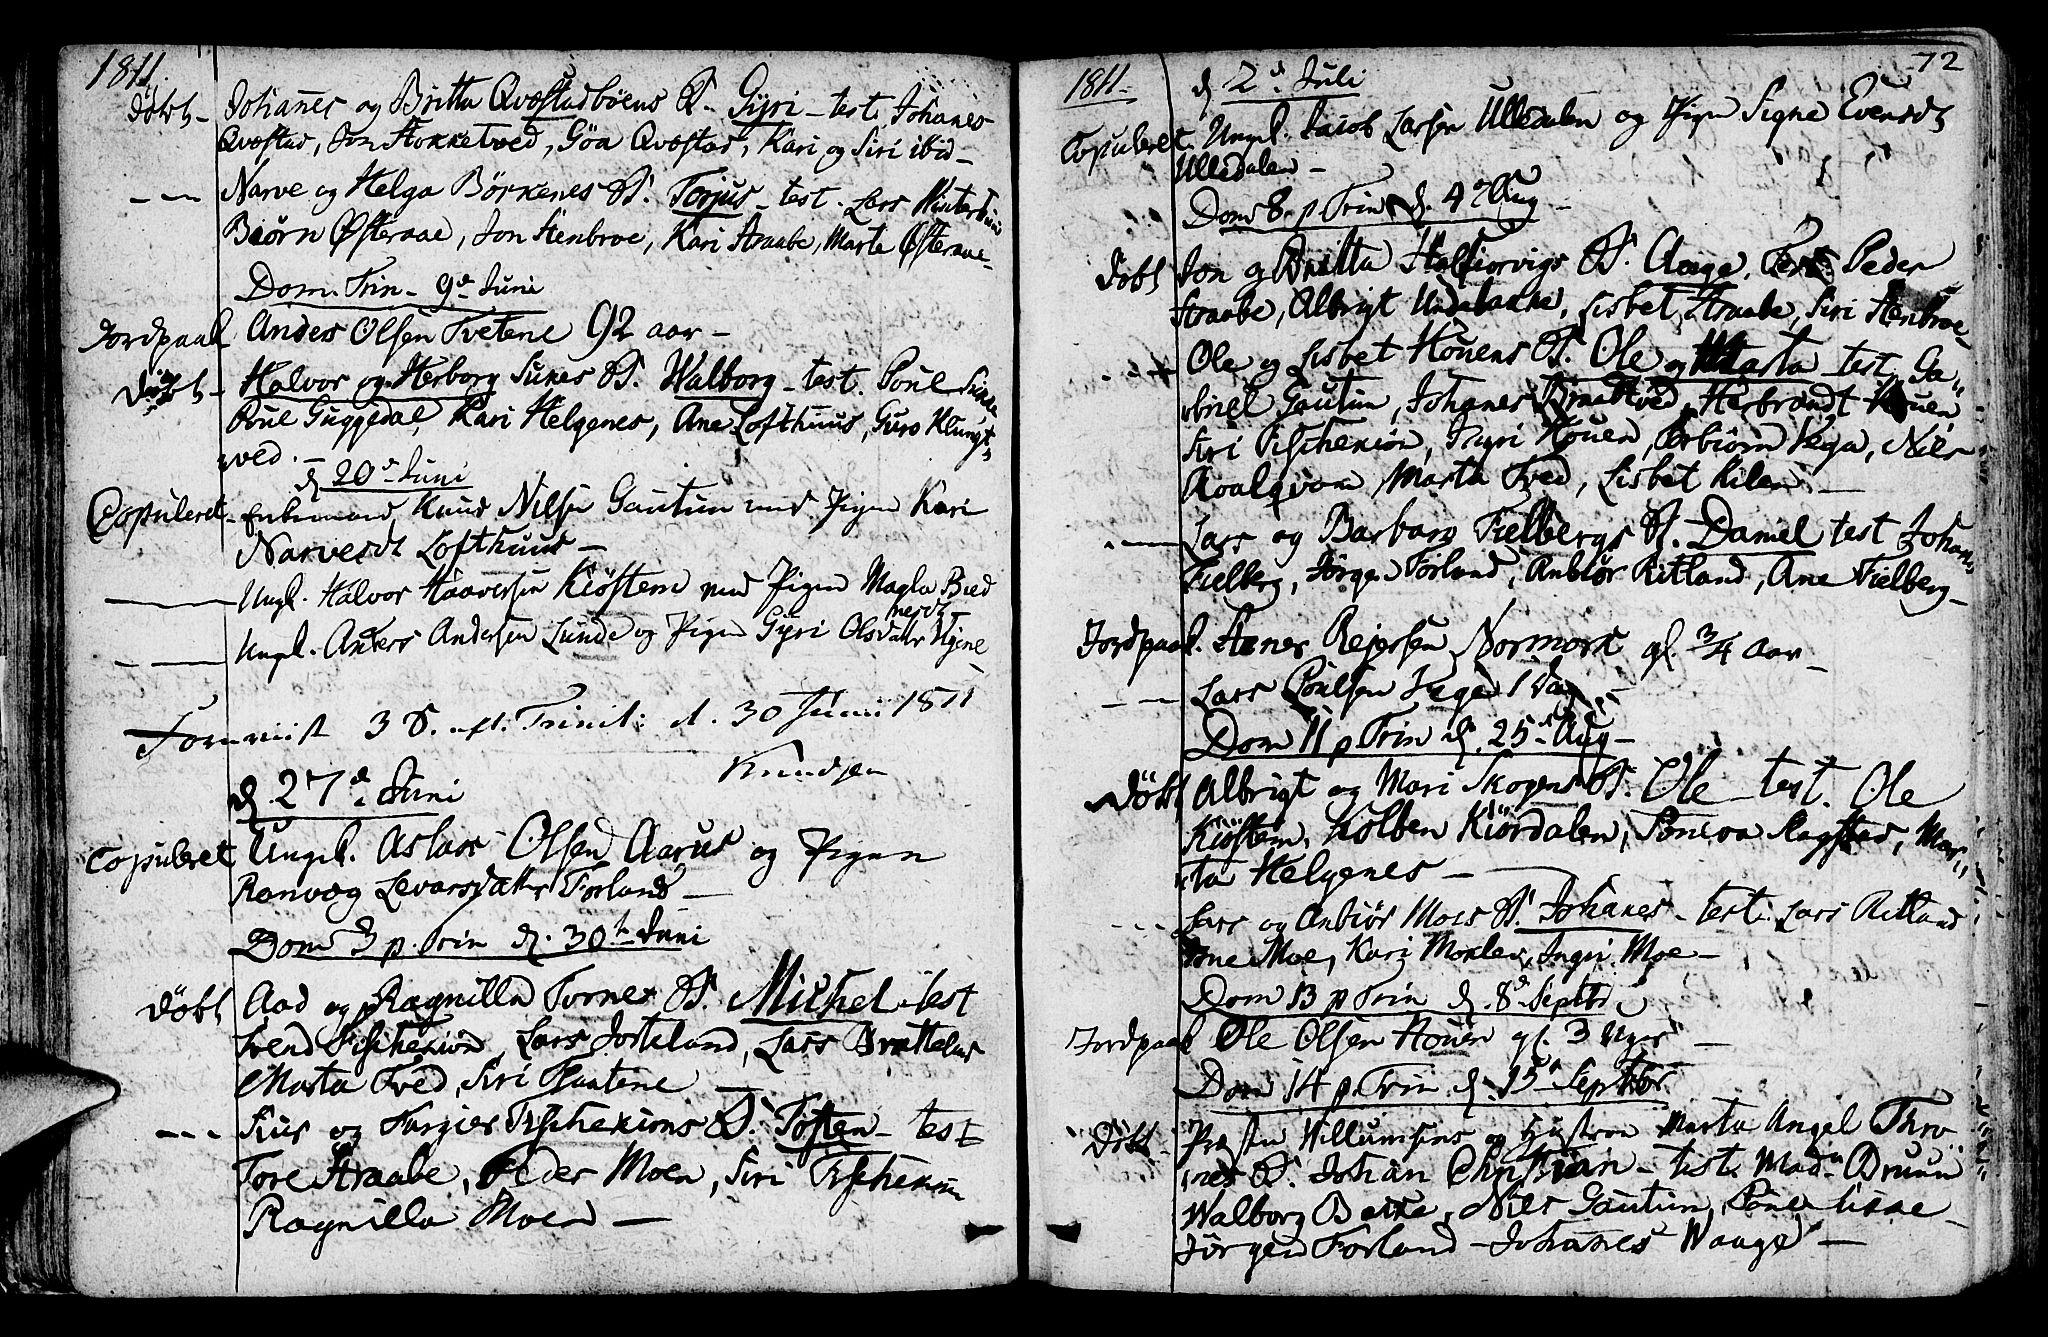 1811.
Døbt - Johanes og Britta Qvæstadbøens B. Gyri - test. Johanes
Qvæstad, Jon Stokketved, Göa Qvæstad, Kari og Siri ibid -
- - Narve og Helga Börkenes B. Torjus - test. Lars
Biørn Østeraae, Jon Stenbroe, Kari Straabe, Marta Østeraae -
Dom. Trin. 9de Juni
Jordpaak. Anders Olsen Tvetene 92 aar -
Døbt - Halvor og Herborg B. Walborg - test. Poul
Poul Guggedal, Kari Helgenes, Ane Lofthuus, Guro Klungt„
tved. -
d. 20de Juni
Copuleret - Enkemand Knud Nilsen Gautun med Pigen Kari
Narvesdt Lofthuus -
- Ungk. Halvor Haaversen Kiöstem med Pigen Magla
- - Ungk. Anders Andersen Lunde og Pigen Gyri
3 S. Trinit: d. 30 Juni 1811
Knudsen
d. 27de Juni
Copuleret Ungk. Aslac Olsen Aarus og Pigen
Ranvæg Levarsdatter Forland -
Dom 3 p. Trin d. 30te Juni
Døbt Aad og Ragnilla Tornes B. Michel - test
Svend Lars Josteland, Lars
Marta Tved, Siri
- - - og B. Tosten - test
Tore Straabe, Peder Moen, Siri
Ragnilla Moen -
72
1811. d. 2de Juli
Copuleret. Ungk. Jacob Larsen Ulledalen og Pigen Signe Evensdt
Ulledalen -
Dom 8. p Trin d. 4de Aug -
Døbt Jon og Britta B. Aage. Test. Peder
Straabe, Albrigt Undebakke, Lisbet Straabe, Siri Stenbroe -
- - + Ole og Lisbet Houens B. Ole og Marta - test. Ga„
briel Gautun, Johanes Herbrandt Houen
Siri Ingri Houen, Vega, Niels
Marta Tved, Lisbet Kilen -
- - Lars og Barbara Fielbergs B. Daniel test Johan
Fielberg, Jörgen Forland, Anbiør Ritland, Ane Fielberg -
Jordpaak. Rejersen Normork gl. 3/4 aar -
- - Lars Poulsen 1 dag -
Dom 11 p Trin d. 25de Aug -
Døbt Albrigt og Mari Skogens B. Ole - test. Ole
Kiöstem, Kolben Kiördalen, Ragstad, Mar„
ta Helgenes -
- - - Lars og Anbiör Moes B. Johanes - test. Lars Ritland
Moe, Kari Ingri Moe -
Dom 13 p Trin d. 8de Septbr
Jordpaak Ole Olsen Houen gl. 3 Uger -
Dom 14 p Trin d. 15de Septbr
Døbt. Præsten Willumsens og Hustroe Marta Angel Thro
nes B. Johan Christian - test. Madm Bruun
Walborg Bakke, Niels Gautun,
Jörgen Forland - Johannes Waage -